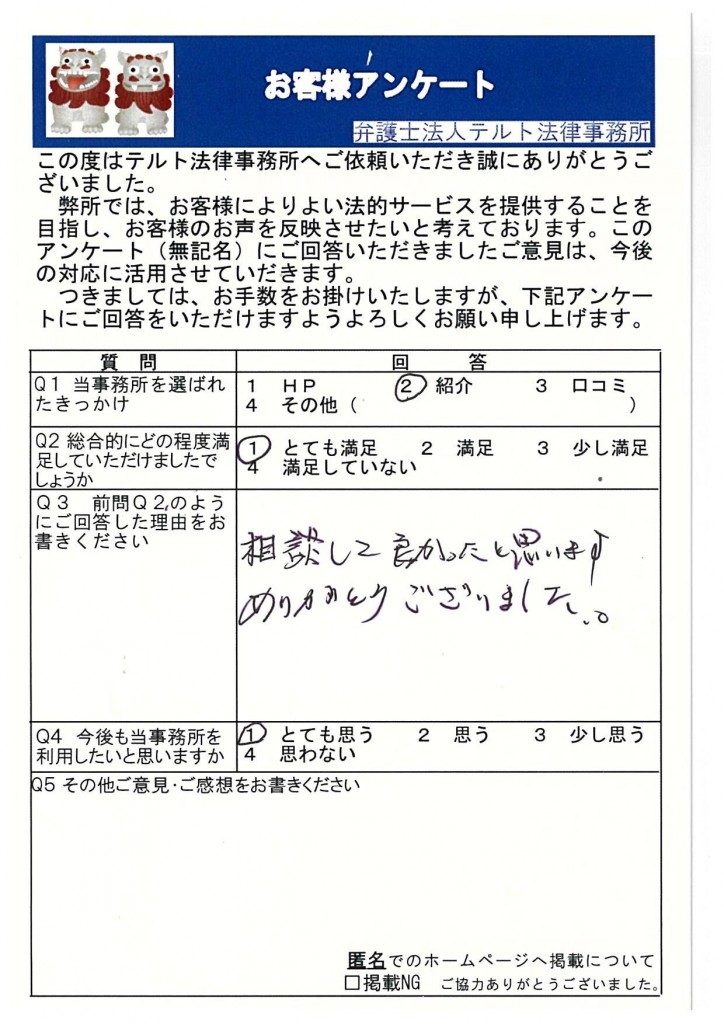 お客様アンケート
弁護士法人テルト法律事務所
この度はテルト法律事務所へご依頼いただき誠にありがとうご
ざいました。
　弊所では、お客様によりよい法的サービスを提供することを
目指し、お客様のお声を反映させたいと考えております。この
アンケート（無記名）にご回答いただきましたご意見は、今後
の対応に活用させていだきます。
　つきましては、お手数をお掛けいたしますが、下記アンケー
トにご回答をいただけますようよろしくお願い申し上げます。
質　問　回　答
Q1 当事務所を選ばれ
たきっかけ
1　HP　2　紹介　3　口コミ
4　その他（　　　）
Q2 総合的にどの程度満
足していただけましたで
しょうか
1　とても満足　2　満足　3　少し満足
4　満足していない
Q3　前問Q2,のよう
にご回答した理由をお
書きください
相談して良かったと思います
ありがとうございました。
Q4　今後も当事務所を
利用したいと思いますか
1　とても思う　2　思う　3　少し思う
4　思わない
Q5 その他ご意見・ご感想をお書きください
匿名でのホームページへ掲載について
□掲載NG　ご協力ありがとうございました。